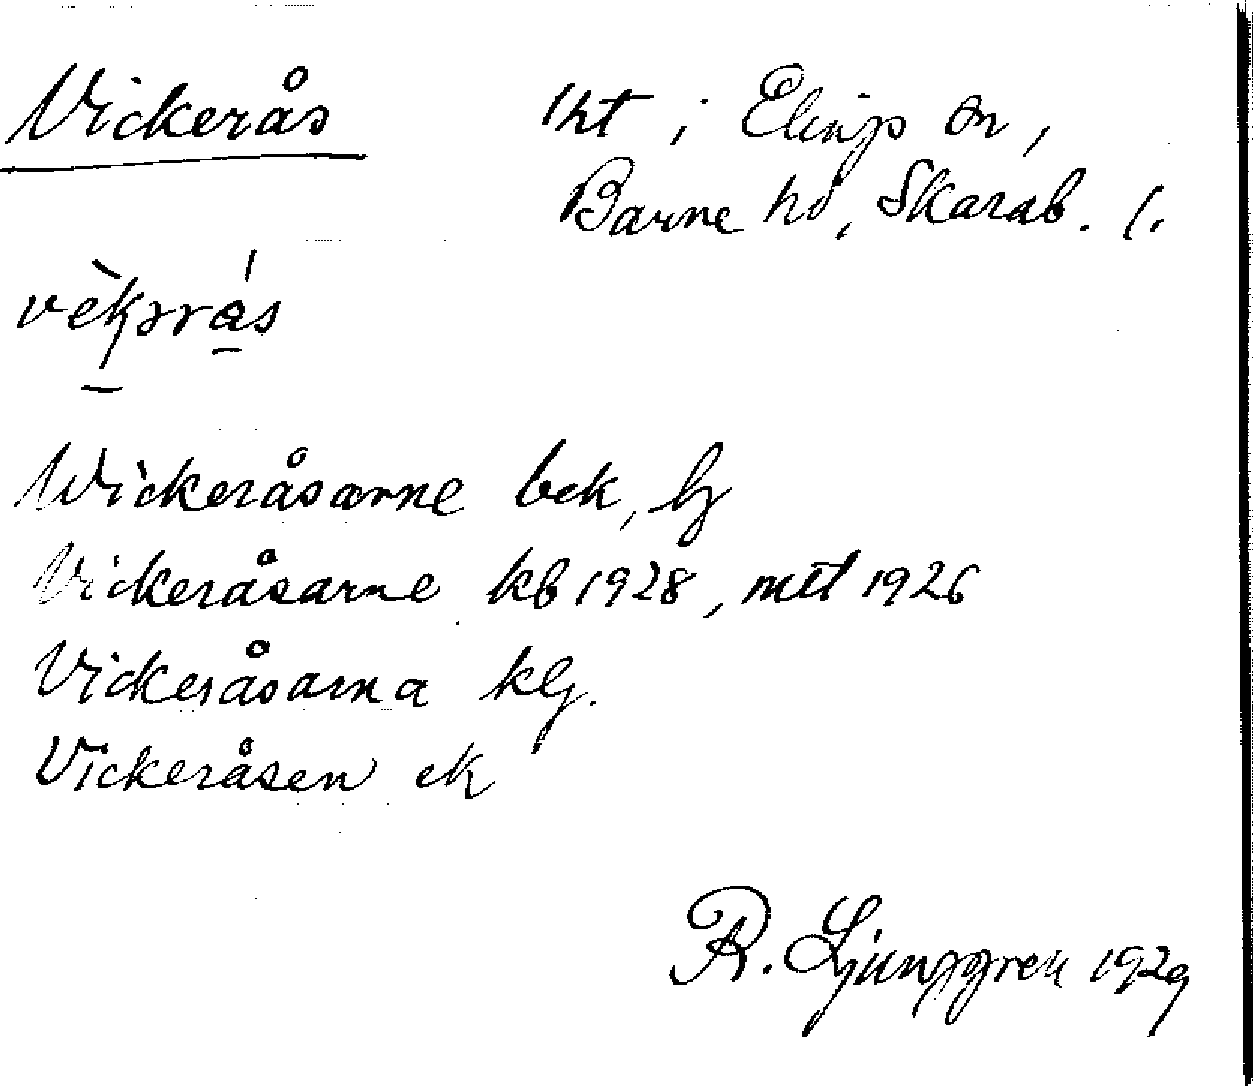 Vickerås lht i Elings sn,
Barne hd, Skarab. l.
vèkərás
Wickeråsarne bek, lj
Vickeråsarne kb 1928, mtl 1926
Vickeråsarna klj.
Vickeråsen ek
R. Ljunggren 1929